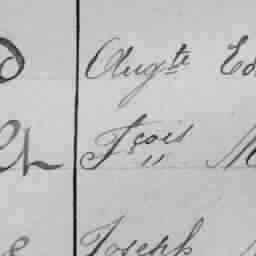 Augte Ed
Fcois M
Joseph